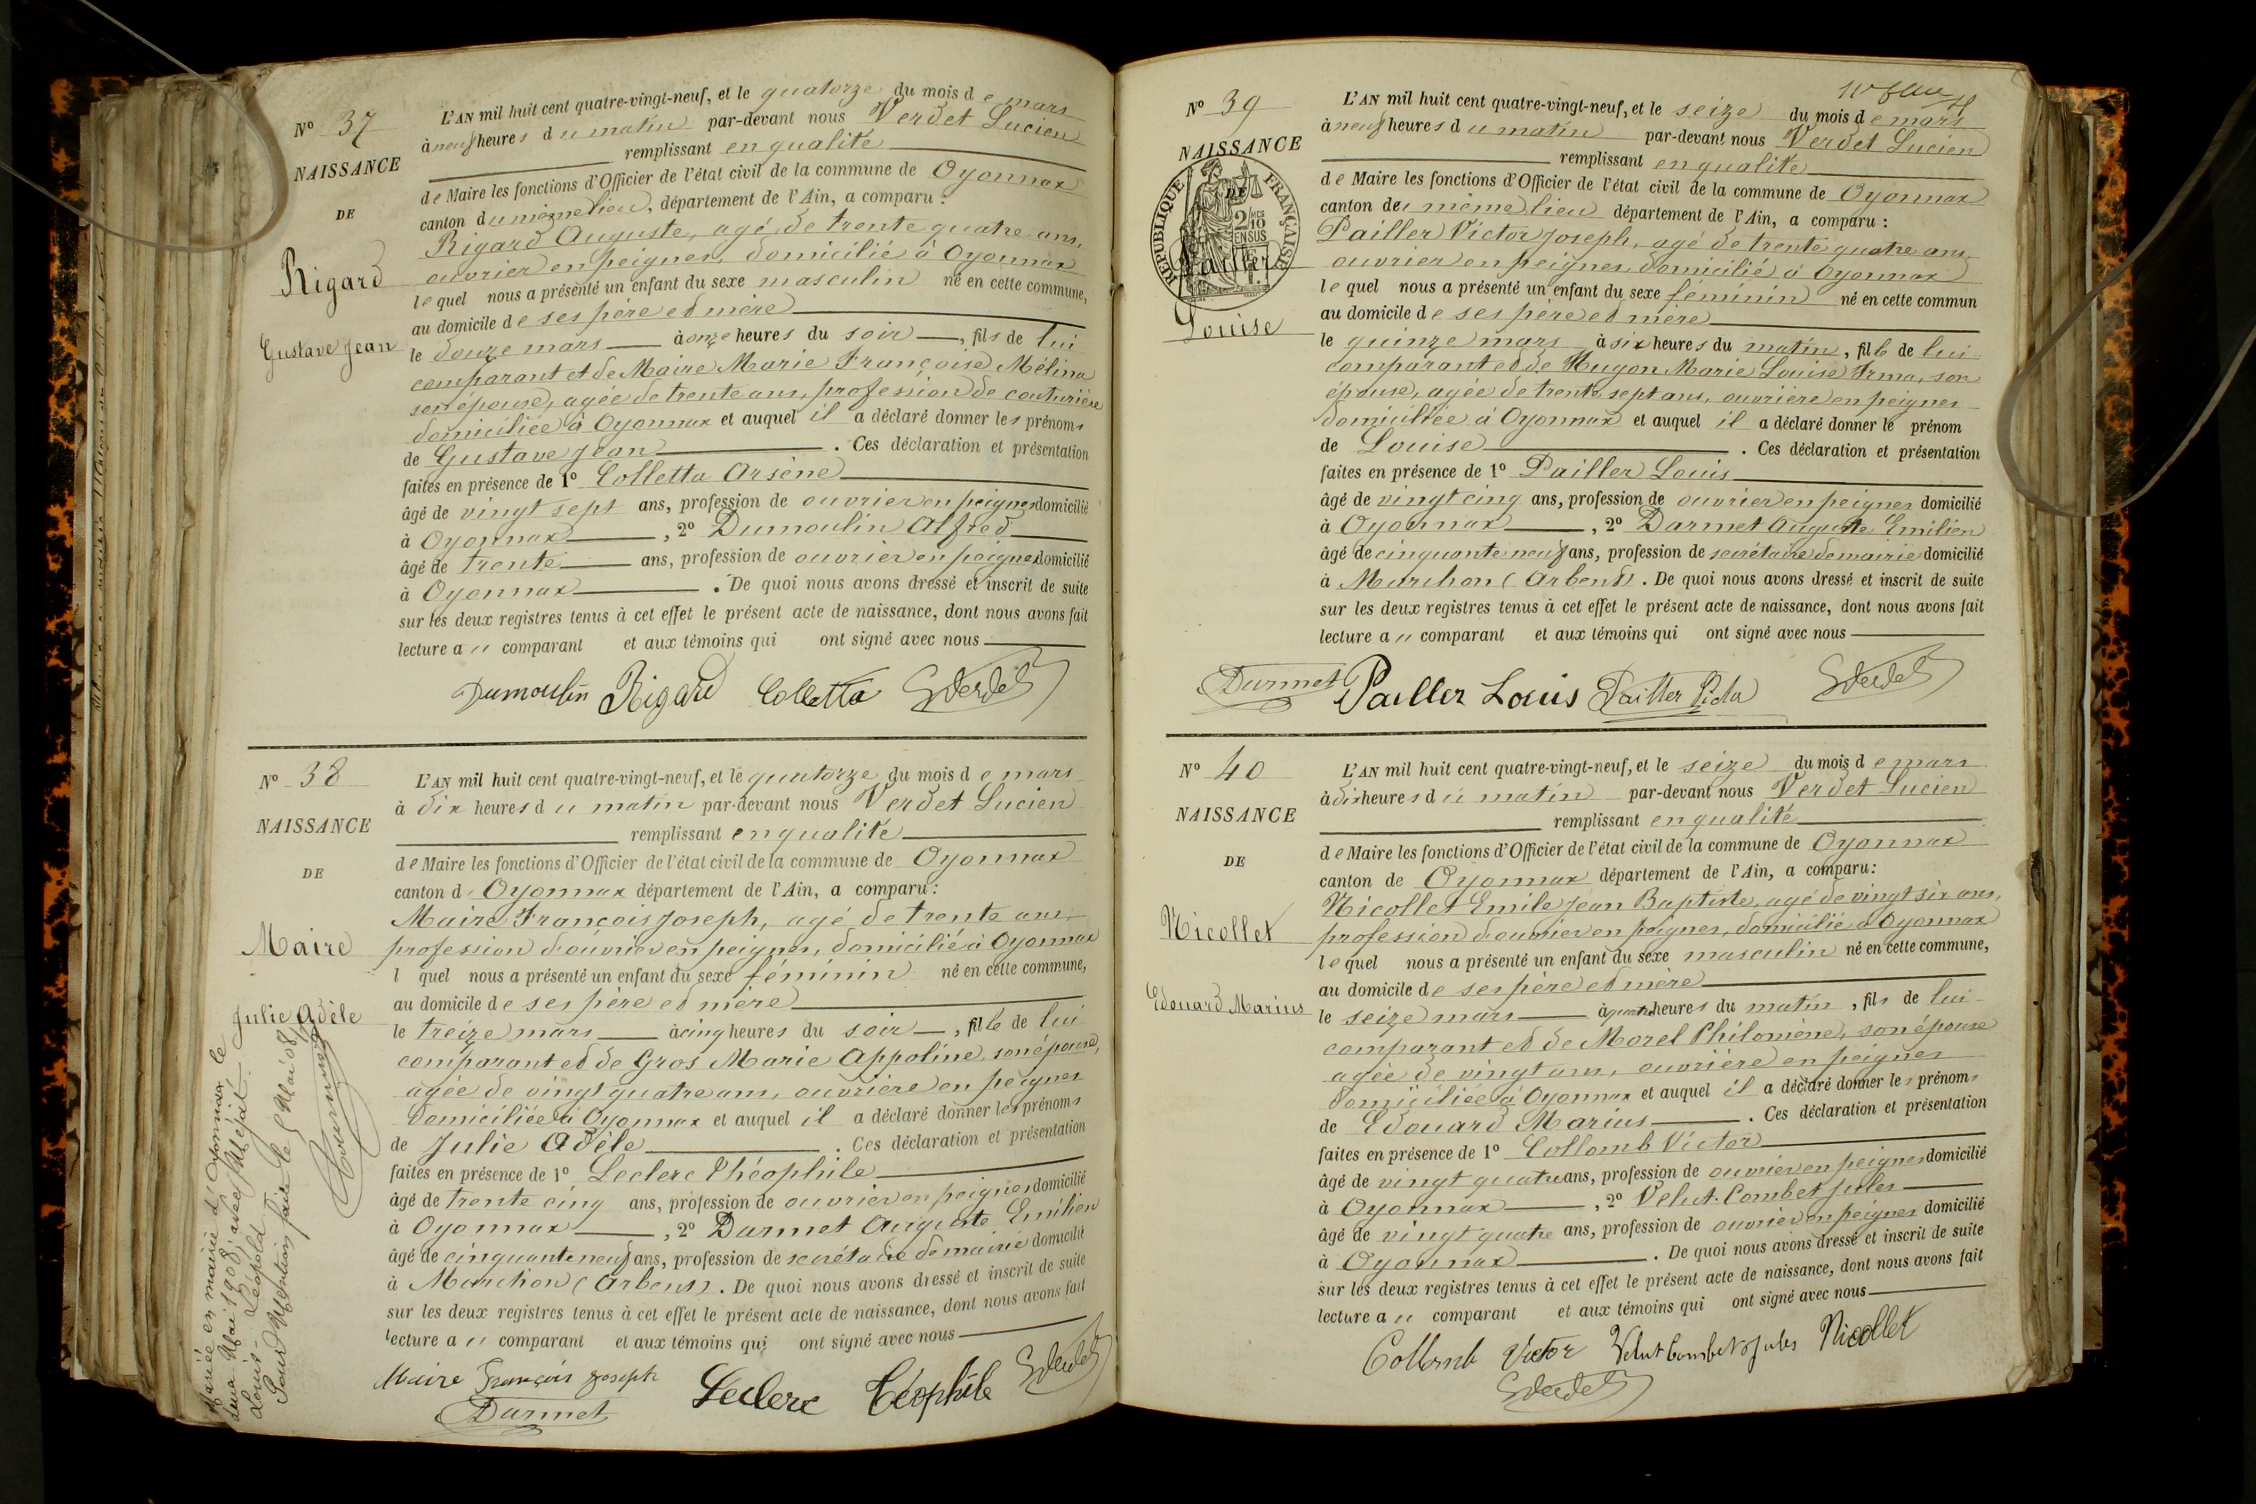 N° 37
NAISSANCE
DE
Rigard
Gustave Jean
L'AN mil huit cent quatre-vingt-neuf, et le quatorze du mois de mars
à neuf heures du matin par-devant nous Verdet Lucien
remplissant en qualité
de Maire les fonctions d'Officier de l'état civil de la commune de Oyonnax
canton du même lieu, département de l'Ain, a comparu :
Rigard Auguste, agé de trente quatre ans,
ouvrier en peignes, domicilié à Oyonnax
lequel nous a présenté un enfant du sexe masculin né en cette commune,
au domicile de ses père et mère
le douze mars à onze heures du soir, fils de lui
comparant et de Maire Marie Françoise Mélina
son épouse, agée de trente ans, profession de couturière
domiciliée à Oyonnax et auquel il a déclaré donner les prénoms
de Gustave Jean. Ces déclaration et présentation
faites en présence de 1° Colletta Arsène
âgé de vingt sept ans, profession de ouvrier en peignes domicilié
à Oyonnax, 2° Dumoulin Alfred
âgé de trente ans, profession de ouvrier en peignes domicilié
à Oyonnax. De quoi nous avons dressé et inscrit de suite
sur les deux registres tenus à cet effet le présent acte de naissance, dont nous avons fait
lecture au comparant et aux témoins qui ont signé avec nous
Dumoulin Rigard Colletta Verdet
N° 38
NAISSANCE
DE
Maire
Julie Adèle
Mariée en mairie d'Oyonnax le
deux Mai 1908, avec Méjat
Louis-Léopold
Pour Mention faite le 5 Mai 08
L'AN mil huit cent quatre-vingt-neuf, et le quatorze du mois de mars
à dix heures du matin par-devant nous Verdet Lucien
remplissant en qualité
de Maire les fonctions d'Officier de l'état civil de la commune de Oyonnax
canton d Oyonnax département de l'Ain, a comparu :
Maire François Joseph, agé de trente ans,
profession d'ouvrier en peignes, domicilié à Oyonnax
l quel nous a présenté un enfant du sexe féminin né en cette commune,
au domicile de ses père et mère
le treize mars à cinq heures du soir, fille de lui
comparant et de Gros Marie Appoline, son épouse,
agée de vingt quatre ans, ouvrière en peignes
domiciliée à Oyonnax et auquel il a déclaré donner les prénoms
de Julie Adèle. Ces déclaration et présentation
faites en présence de 1° Leclerc Théophile
âgé de trente cinq ans, profession de ouvrier en peignes domicilié
à Oyonnax, 2° Darmet Auguste Emilien
âgé de cinquante neuf ans, profession de secrétaire de mairie domicilié
à Marchon (Arbent). De quoi nous avons dressé et inscrit de suite
sur les deux registres tenus à cet effet le présent acte de naissance, dont nous avons fait
lecture au comparant et aux témoins qui ont signé avec nous
Maire François Joseph Leclerc Téophile Verdet
Darmet
N° 39
NAISSANCE
DE
REPUBLIQUE FRANÇAISE
2/10 EN SUS
Pailler
Louise
L'AN mil huit cent quatre-vingt-neuf, et le seize du mois de mars
à neuf heures du matin par-devant nous Verdet Lucien
remplissant en qualité
de Maire les fonctions d'Officier de l'état civil de la commune de Oyonnax
canton deu même lieu département de l'Ain, a comparu :
Pailler Victor Joseph, agé de trente quatre ans,
ouvrier en peignes domicilié à Oyonnax
lequel nous a présenté un enfant du sexe féminin né en cette commun
au domicile de ses père et mère
le quinze mars à six heures du matin, fille de lui
comparant et de Hugon Marie Louise Irma, son
épouse, agée de trente sept ans, ouvrière en peignes
domiciliée à Oyonnax et auquel il a déclaré donner le prénom
de Louise. Ces déclaration et présentation
faites en présence de 1° Pailler Louis
âgé de vingt cinq ans, profession de ouvrier en peignes domicilié
à Oyonnax, 2° Darmet Auguste Emilien
âgé de cinquante neuf ans, profession de secrétaire de mairie domicilié
à Marchon (Arbent). De quoi nous avons dressé et inscrit de suite
sur les deux registres tenus à cet effet le présent acte de naissance, dont nous avons fait
lecture au comparant et aux témoins qui ont signé avec nous
Darmet Pailler Louis Pailler Victor Verdet
N° 40
NAISSANCE
DE
Nicollet
Edouard Marius
L'AN mil huit cent quatre-vingt-neuf, et le seize du mois de mars
à dix heures du matin par-devant nous Verdet Lucien
remplissant en qualité
de Maire les fonctions d'Officier de l'état civil de la commune de Oyonnax
canton de Oyonnax département de l'Ain, a comparu :
Nicollet Emile Jean Baptiste, agé de vingt six ans,
profession d'ouvrier en peignes, domicilié à Oyonnax
lequel nous a présenté un enfant du sexe masculin né en cette commune,
au domicile de ses père et mère
le seize mars à quatre heures du matin, fils de lui
comparant et de Morel Philomène, son épouse
agée de vingt ans, ouvrière en peignes
domiciliée à Oyonnax et auquel il a déclaré donner les prénoms
de Edouard Marius. Ces déclaration et présentation
faites en présence de 1° Collomb Victor
âgé de vingt quatre ans, profession de ouvrier en peignes domicilié
à Oyonnax, 2° Velut-Combet Jules
âgé de vingt quatre ans, profession de ouvrier en peignes domicilié
à Oyonnax. De quoi nous avons dressé et inscrit de suite
sur les deux registres tenus à cet effet le présent acte de naissance, dont nous avons fait
lecture au comparant et aux témoins qui ont signé avec nous
Collomb Victor Velut Combet Jules Nicollet
Verdet